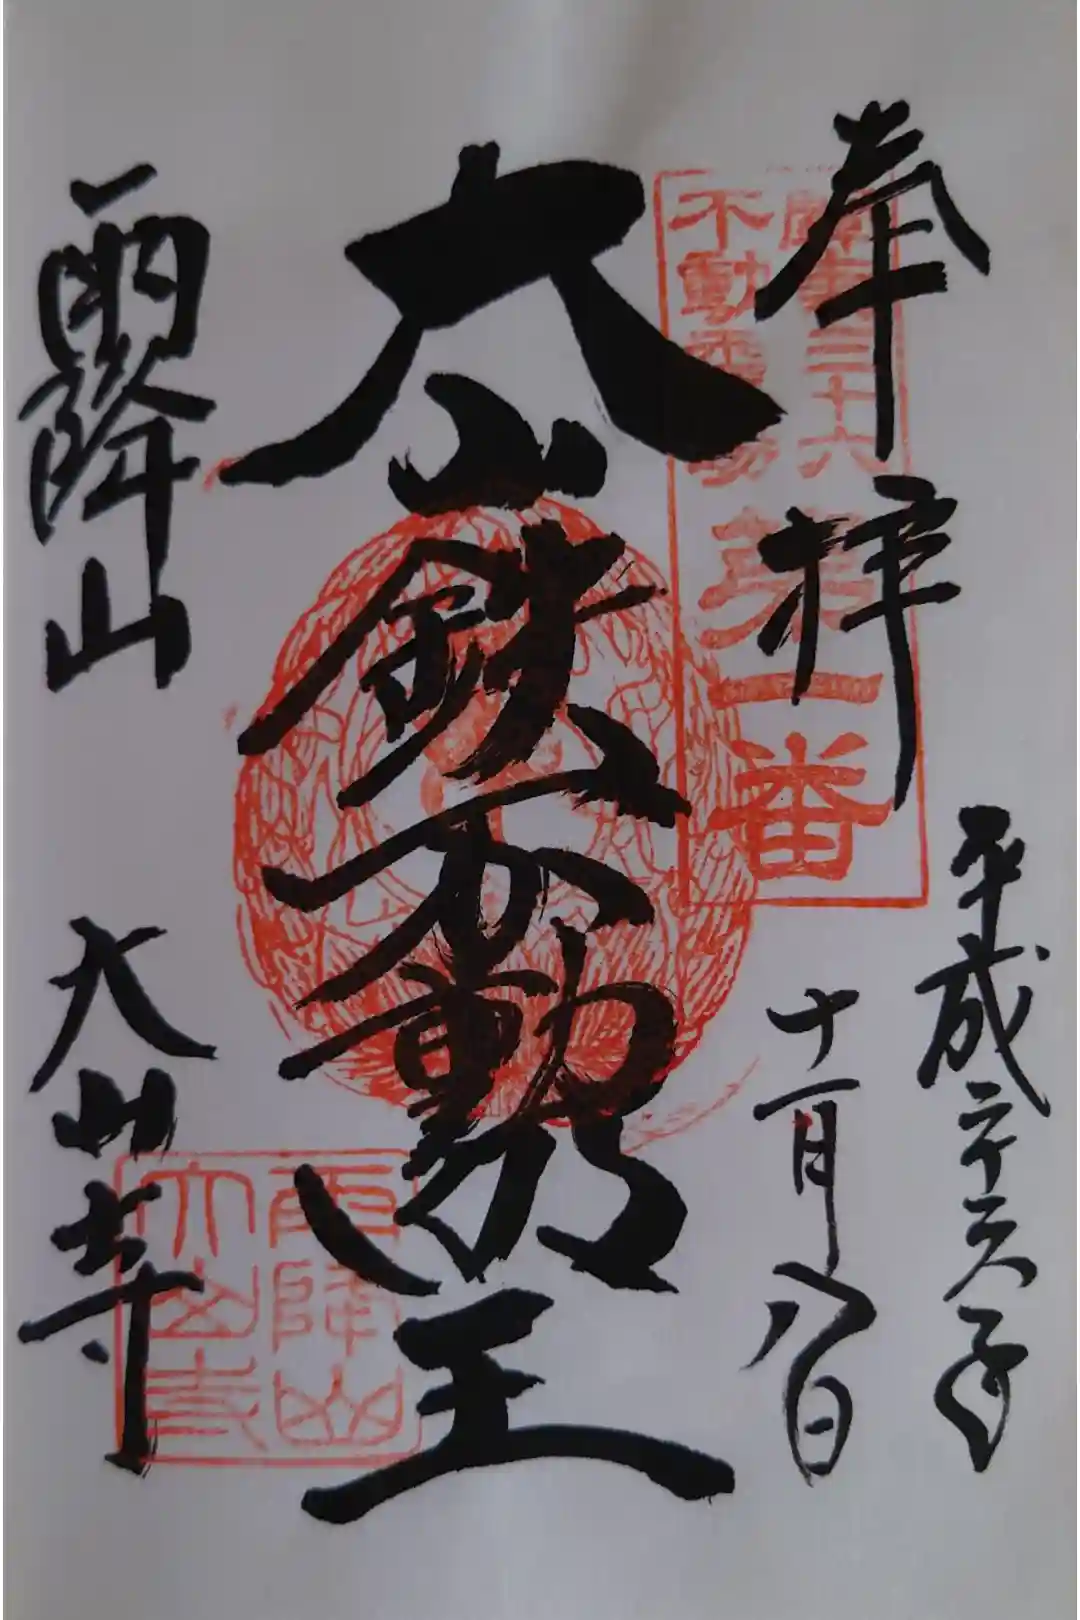 奉拝
関東三十六
不動霊場
第一番
平成二十六年
十一月八日
大山鉄不動明王
雨降山
大山寺
雨降山
大山寺